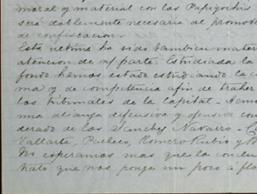 moral y material con las Papigochis
será doblemente necesario al promoto
de confiscacion.
Esta ultima ha sido tambien mater
atencion de mi parte. Estudiada la
fondo hemos estado estudiando la
ma y de competencia afin de traher
los tribunales de la Capital.
una alianza defensiva y ofensiva con
derado de los Sanchez Navarro.
Vallarta, Pacheco, Romero Rubio y
No esperamos mas que la condu
hato que nos ponga un poco a flo